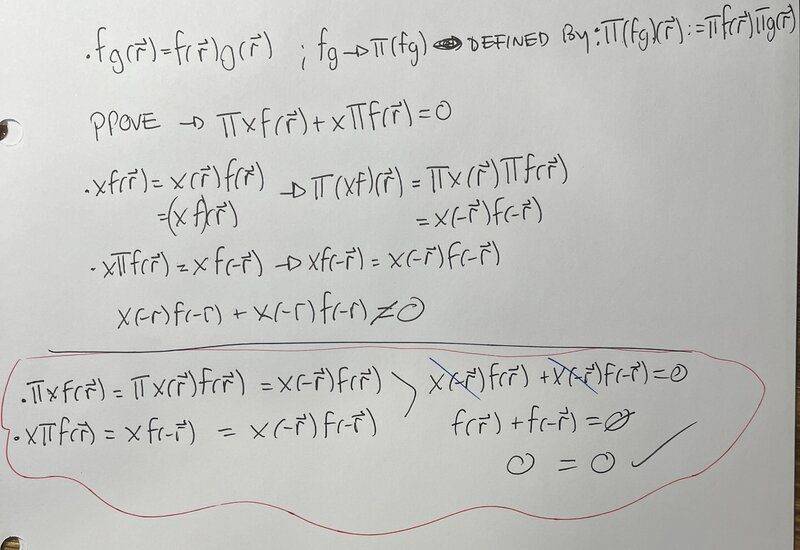 . fg(r⃗) = f(r⃗)g(r⃗) ; fg → Π(fg) DEFINED BY: Π(fg)(r⃗) := Πf(r⃗)Πg(r⃗)
PROVE → Πxf(r⃗) + xΠf(r⃗) = 0
· xf(r⃗) = x(r⃗)f(r⃗) → Π(xf)(r⃗) = Πx(r⃗)Πf(r⃗)
= (xf)(r⃗) = x(-r⃗)f(-r⃗)
· xΠf(r⃗) = xf(-r⃗) → xf(-r⃗) = x(-r⃗)f(-r⃗)
x(-r)f(-r) + x(-r)f(-r) ≠ 0
. Πxf(r⃗) = Πx(r⃗)f(r⃗) = x(-r⃗)f(r⃗) > x(-r⃗)f(r⃗) + x(-r⃗)f(-r⃗) = 0
· xΠf(r⃗) = xf(-r⃗) = x(-r⃗)f(-r⃗) f(r⃗) + f(-r⃗) = 0
0 = 0 ✓